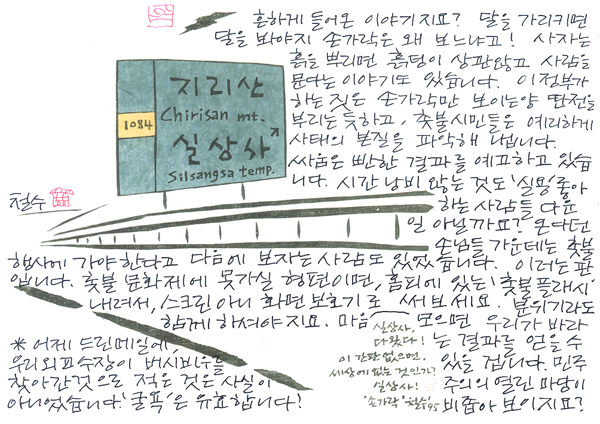 흔하게 들어온 이야기지요? 달을 가리키면
달을 봐야지 손가락은 왜 보느냐고! 사자는
흙을 뿌리면 흙덩이 상관않고 사람을
문다는 이야기도 있습니다. 이 정부가
하는 짓은 손가락만 보이는양 딴전을
부리는 듯하고, 촛불시민들은 예리하게
사태의 본질을 파악해 냅니다.
싸움은 뻔한 결과를 예고하고 있습
니다. 시간 낭비 않는 것도 '실용'좋아
하는 사람들 다운
일 아닐까요? 온다던
손님들 가운데는 촛불
행사에 가야한다고 다음에 보자는 사람도 있었습니다. 이러는 판
입니다. 촛불 문화제에 못가실 형편이면, 홈피에 있는 '촛불플래시'
내려서, 스크린 아니 화면 보호기로 써보세요. 분위기라도
함께 하셔야지요. 마음 모으면 우리가 바라
는 결과를 얻을 수
있을 겁니다. 민주
주의의 열린 마당이
비좁아 보이지요?
지리산
Chirisan mt.
1084
실상사
Silsangsa temp.
철수
실상사,
다왔다!
이 간판 없으면,
세상에 없는 것인가?
실상사!
'손가락' 철수 95
* 어제 드린메일에,
우리외교수장이 버시바우를
찾아간것으로 적은 것은 사실이
아니었습니다. '굴욕'은 유효합니다!